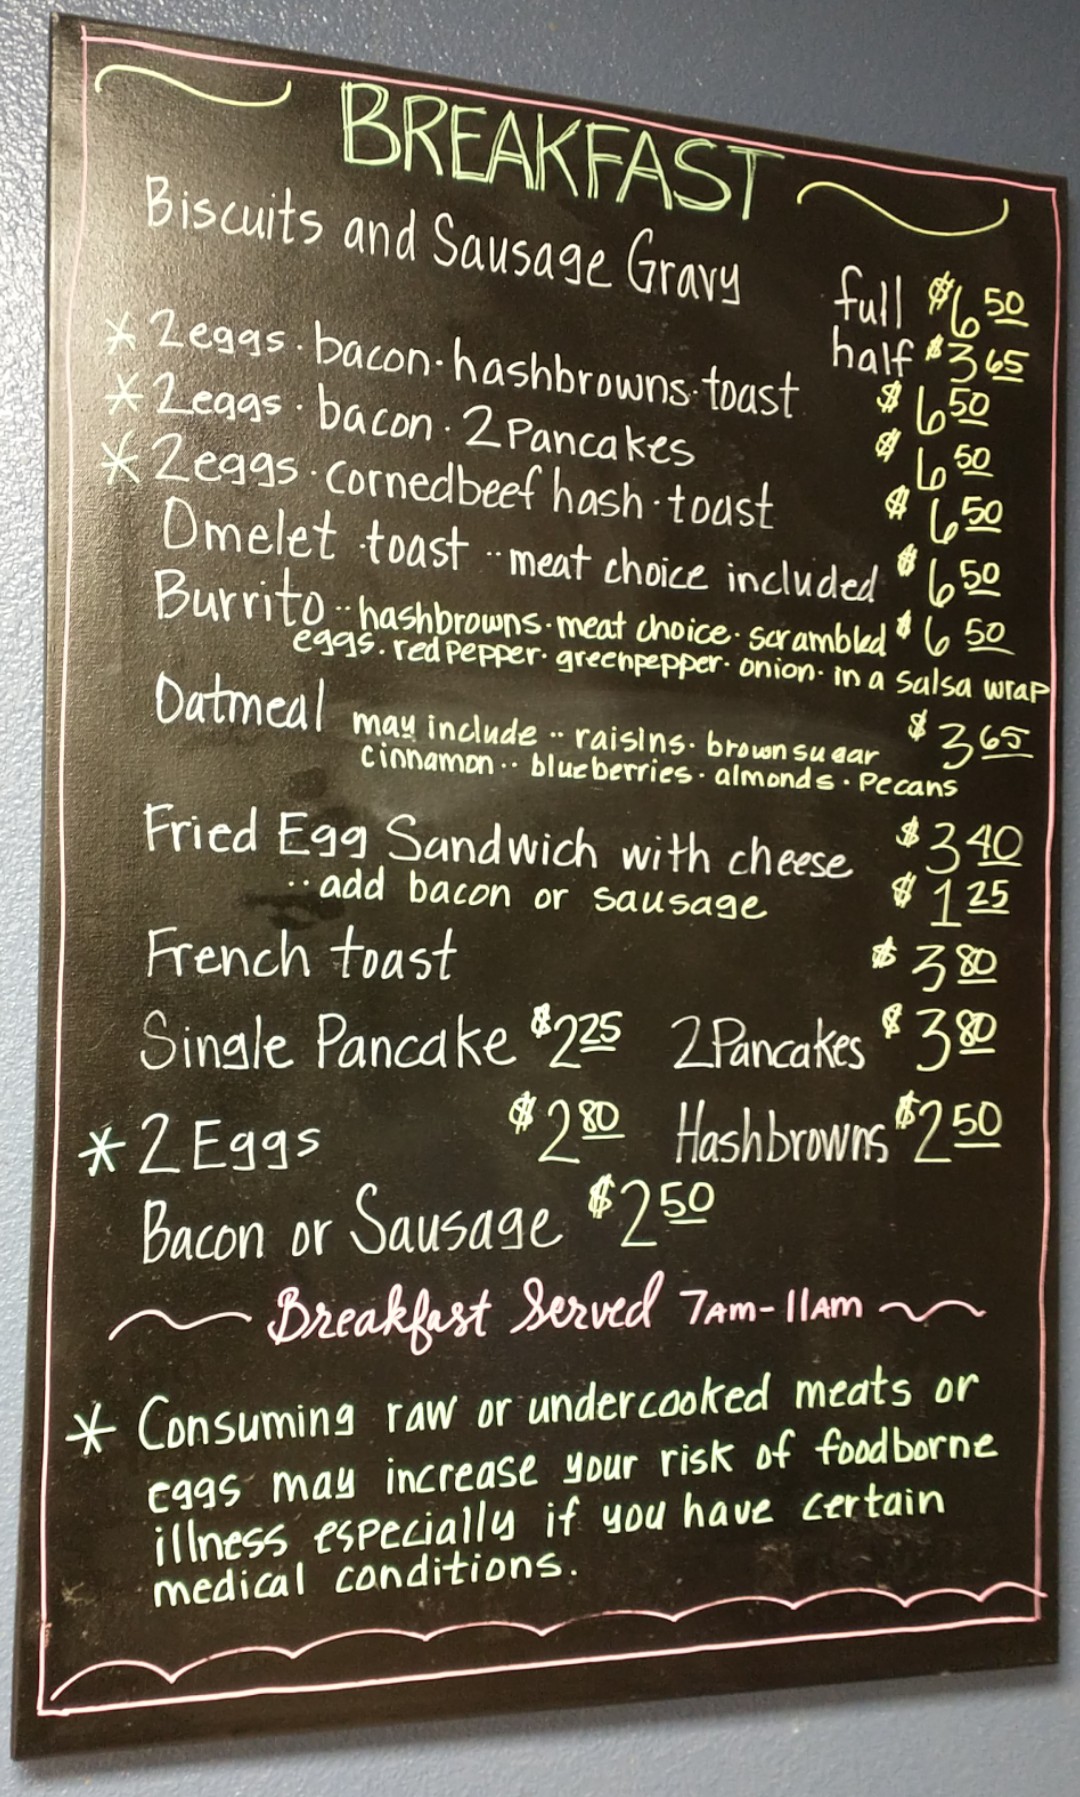 BREAKFAST
Biscuits and Sausage Gravy full $6 50
half $3 65
* 2 eggs · bacon · hashbrowns · toast $6 50
* 2 eggs · bacon · 2 Pancakes $6 50
* 2 eggs · cornedbeef hash · toast $6 50
Omelet toast ·· meat choice included $6 50
Burrito ·· hashbrowns · meat choice · scrambled $6 50
eggs · red pepper · greenpepper · onion · in a salsa wrap
Oatmeal may include ·· raisins · brown sugar $3 65
cinnamon ·· blueberries · almonds · Pecans
Fried Egg Sandwich with cheese $3 40
·· add bacon or sausage $1 25
French toast $3 80
Single Pancake $2 25 2 Pancakes $3 80
* 2 Eggs $2 80 Hashbrowns $2 50
Bacon or Sausage $2 50
Breakfast Served 7AM-11AM
* Consuming raw or undercooked meats or
eggs may increase your risk of foodborne
illness especially if you have certain
medical conditions.